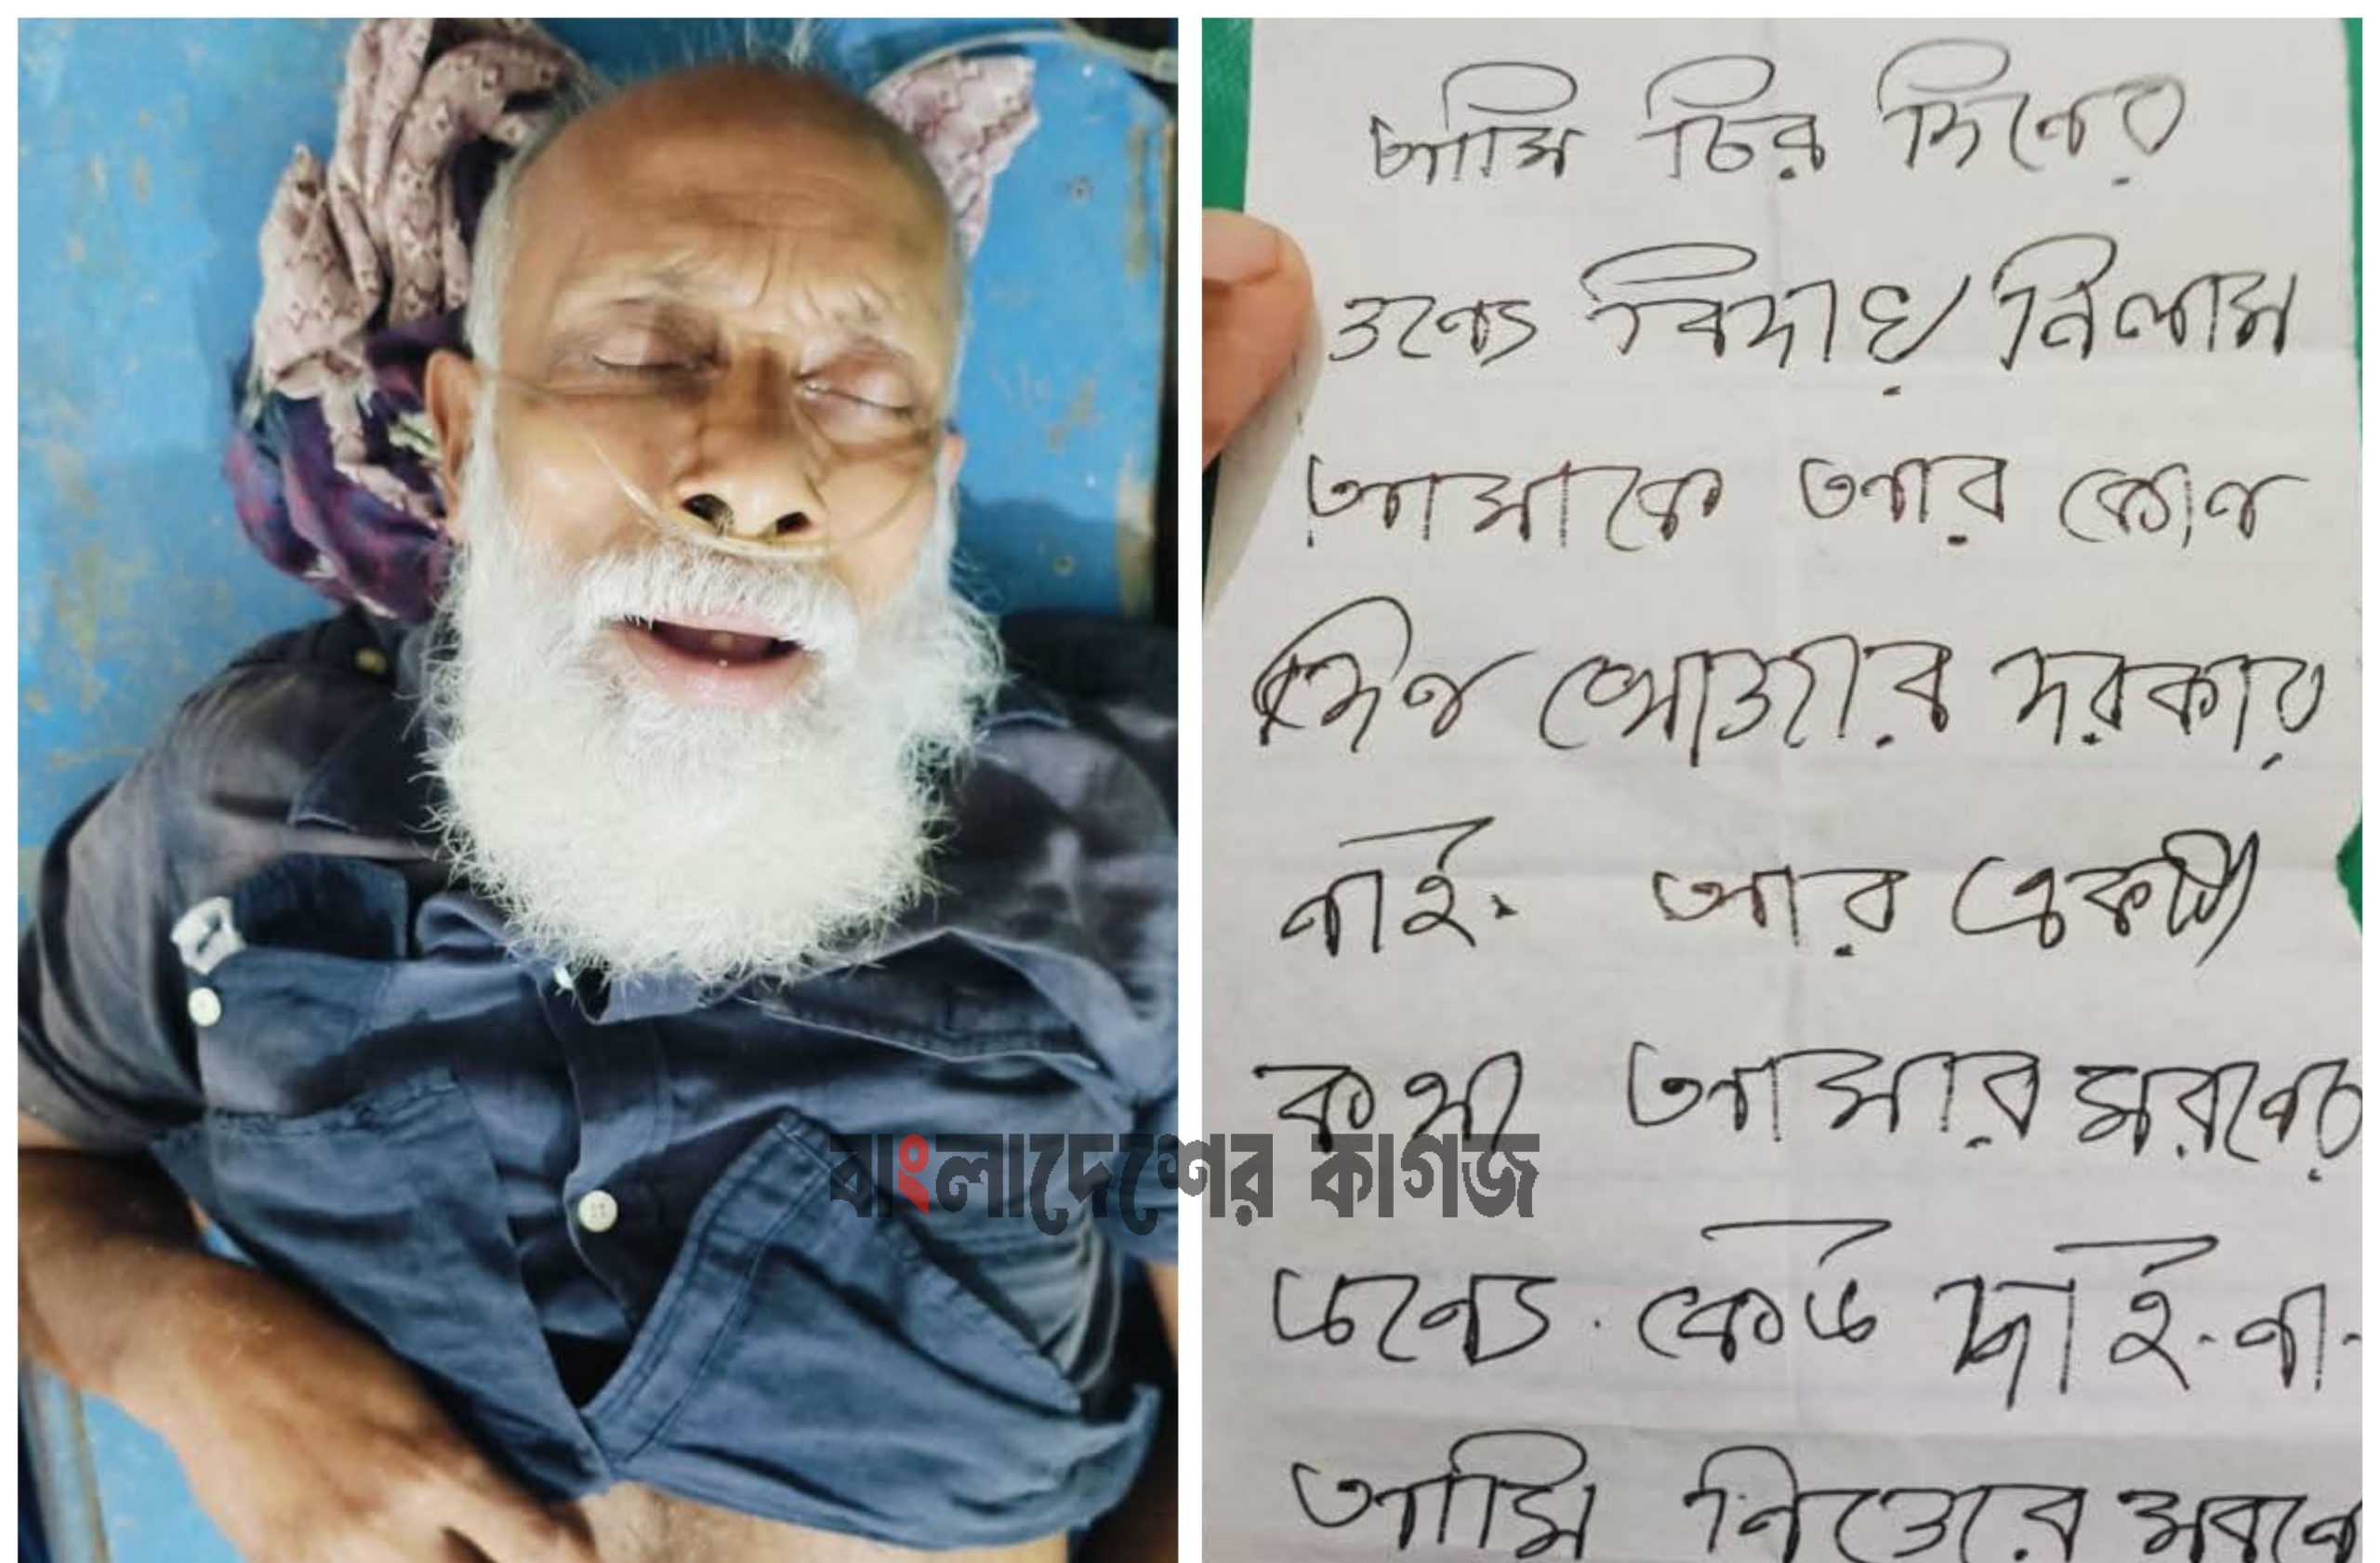 আমি চির দিনের
জন্যে বিদায় নিলাম
আমাকে আর কোন
দিন খোজার দরকার
নাই. আর একটা
কথা আমার মরনের
জন্যে. কেউ দাই.না.
আমি নিজের মরনে
বাংলাদেশের কাগজ